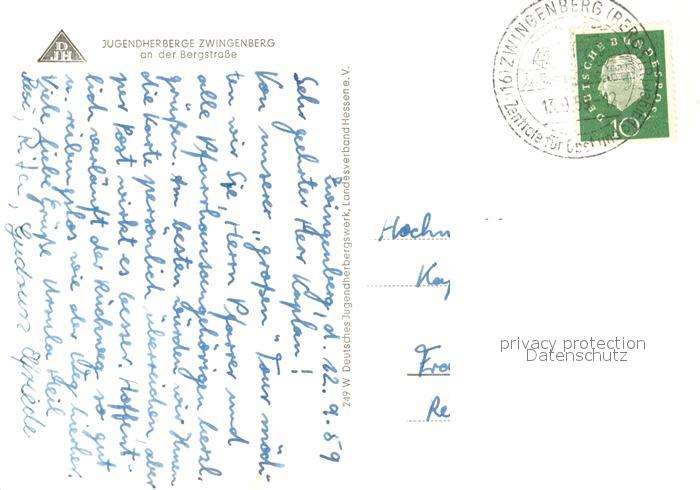 DJH
JUGENDHERBERGE ZWINGENBERG
an der Bergstraße
Zwingenberg, d. 12. 9. 59
Sehr geehrter Herr Kaplan!
Von unserer „großen" Tour möch-
ten wir Sie, Herrn Pfarrer und
alle Pfarrhausangehörigen herzl.
grüßen. Am besten würden wir Ihnen
die Karte persönlich überreichen, aber
per Post wirkt es besser. Hoffent-
lich verläuft der Rückweg so gut
u. reibungslos wie der Weg hierher.
Viele liebe Grüße Ursula Heil
Rita, Gudrun
249 W Deutsches Jugendherbergswerk, Landesverband Hessen e. V.
(16) ZWINGENBERG (BER
DEUTSCHE BUNDESPOST
10
Hochw
Kap
Re
privacy protection
Datenschutz